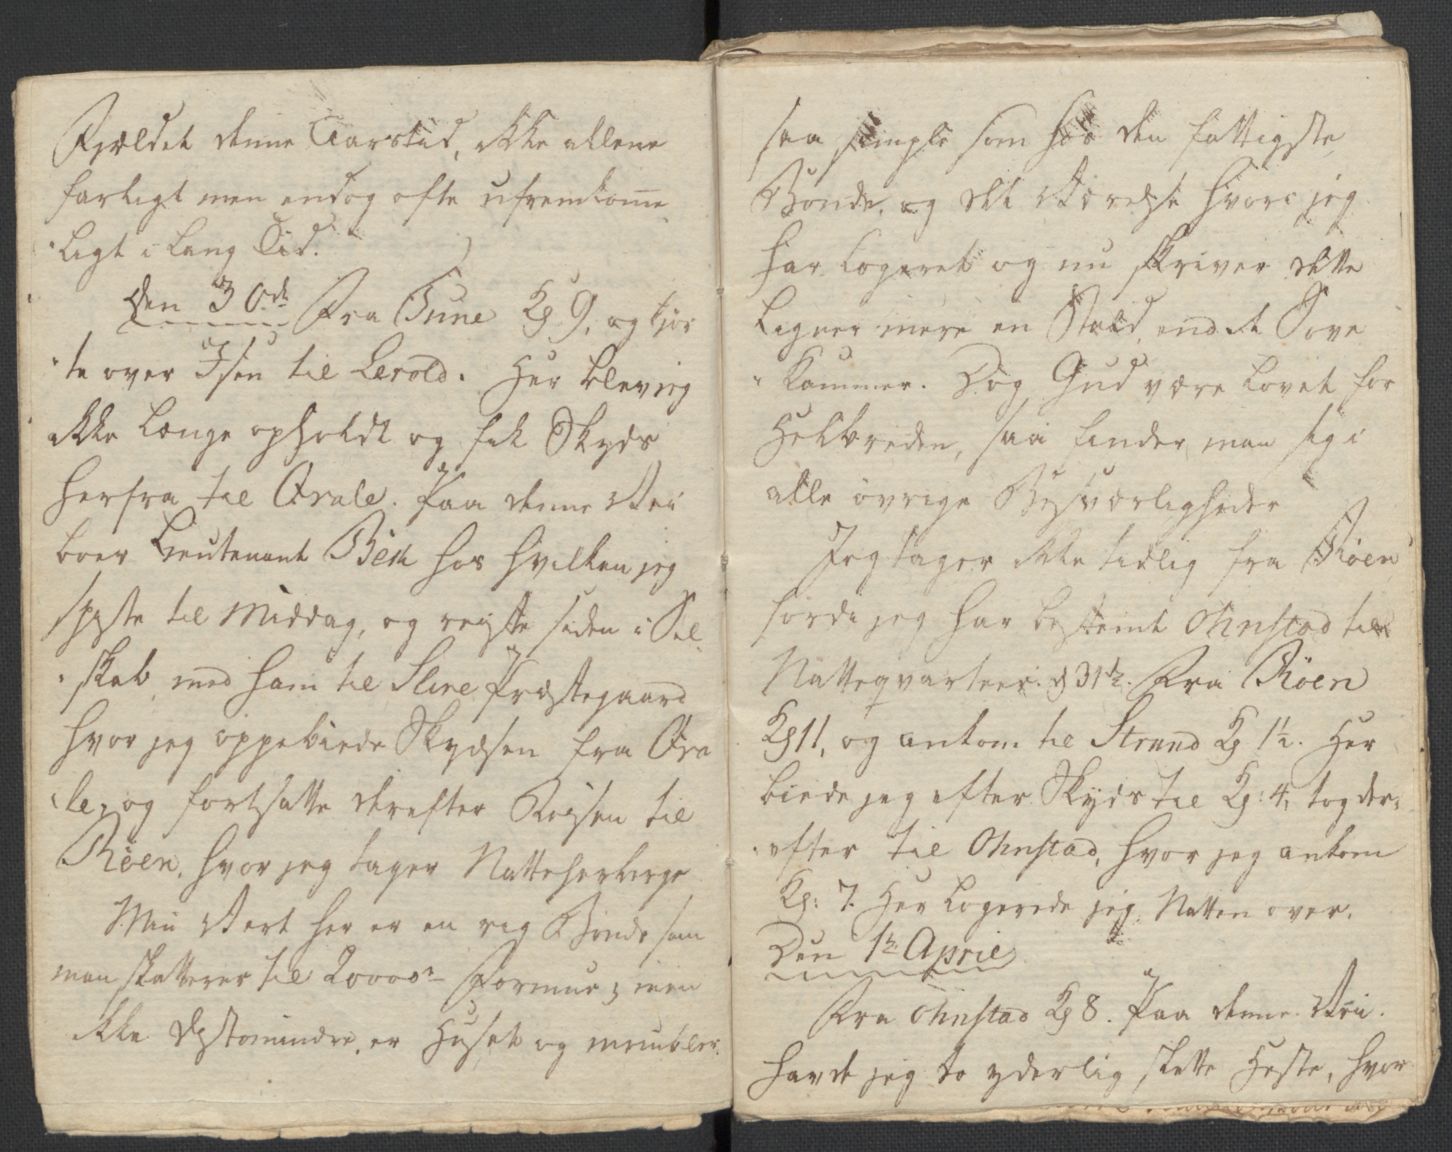 Fjeldet denne Aarstid, ikke allene
farligt men endog ofte ufremkom̅e
ligt i lang Tid.
Den 30de Fra Tune Kl 9, og kjör
te over Isen til Qvale. Her blev jeg
ikke længe opholdt og fik Skyds
herfra til Qvale. Paa denne Vei
boer Lieutenant Bech hos hvilken jeg
spiste til Middag, og reiste siden i Sel
skab med ham til Slire Præstegaard
hvor jeg oppebiede Skydsen fra Qva
le, og fortsatte derefter Reisen til
Röen, hvor jeg tager Natteherberge
Min Vert her er en rig Bonde som
man skatterer til 20000 Formue; men
ikke destomindre er Huset og meubler
saa simple som hos den fattigste
Bonde, og det Værelse hvori jeg
har logeret og nu skriver dette
ligner mere en Stald end et Sove
Kammer. Dog Gud være lovet for
Helbreden, saa finder man sig i
alle övrige Besværligheder
Jeg tager ikke tidlig fra Röen
fordi jeg har bestemt Ohnstad til
Natteqvarteer. d 31te. Fra Röen
Kl 11, og ankom til Strand Kl 1½. Her
biede jeg efter Skyds til Kl: 4, tog der
efter til Ohnstad, hvor jeg ankom
Kl: 7. Her logerede jeg Natten over.
Den 1te April
Fra Ohnstad Kl 8. Paa denne Vei
havde jeg to yderlig slette Heste, hvor